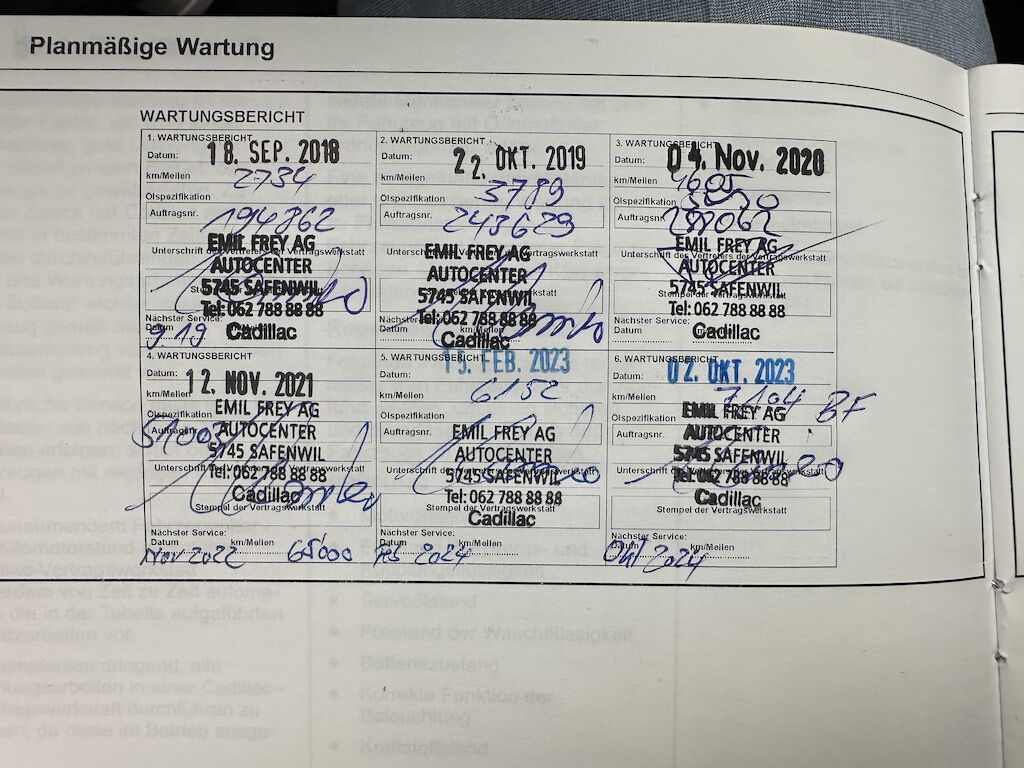 Planmäßige Wartung
WARTUNGSBERICHT
1. WARTUNGSBERICHT
Datum: 18. SEP. 2018
km/Meilen 2734
Ölspezifikation
Auftragsnr. 194862
Unterschrift des Vertreters der Vertragswerkstatt
EMIL FREY AG
AUTOCENTER
5745 SAFENWIL
Tel: 062 788 88 88
Cadillac
Nächster Service:
Datum 9.19
2. WARTUNGSBERICHT
Datum: 22. OKT. 2019
km/Meilen 3789
Ölspezifikation
Auftragsnr. 243629
Unterschrift des Vertreters der Vertragswerkstatt
EMIL FREY AG
AUTOCENTER
5745 SAFENWIL
Tel: 062 788 88 88
Cadillac
Nächster Service:
Datum km/Meilen
3. WARTUNGSBERICHT
Datum: 04. Nov. 2020
km/Meilen
Ölspezifikation
Auftragsnr.
Unterschrift des Vertreters der Vertragswerkstatt
EMIL FREY AG
AUTOCENTER
Stempel der Vertragswerkstatt
5745 SAFENWIL
Tel: 062 788 88 88
Cadillac
Nächster Service:
Datum km/Meilen
4. WARTUNGSBERICHT
Datum: 12. NOV. 2021
km/Meilen
Ölspezifikation
Auftragsnr.
EMIL FREY AG
AUTOCENTER
5745 SAFENWIL
Unterschrift des Vertreters der Vertragswerkstatt
Tel: 062 788 88 88
Cadillac
Stempel der Vertragswerkstatt
Nächster Service:
Datum km/Meilen
Nov 2022 65'000
5. WARTUNGSBERICHT
Datum: FEB. 2023
km/Meilen 6152
Ölspezifikation
Auftragsnr.
EMIL FREY AG
AUTOCENTER
Unterschrift des Vertreters der Vertragswerkstatt
5745 SAFENWIL
Tel: 062 788 88 88
Stempel der Vertragswerkstatt
Cadillac
Nächster Service:
Datum km/Meilen
Feb 2024
6. WARTUNGSBERICHT
Datum: 02. OKT. 2023
km/Meilen 7104 BF
Ölspezifikation
EMIL FREY AG
Auftragsnr.
AUTOCENTER
5745 SAFENWIL
Unterschrift des Vertreters der Vertragswerkstatt
Tel: 062 788 88 88
Cadillac
Stempel der Vertragswerkstatt
Nächster Service:
Datum km/Meilen
Okt 2024